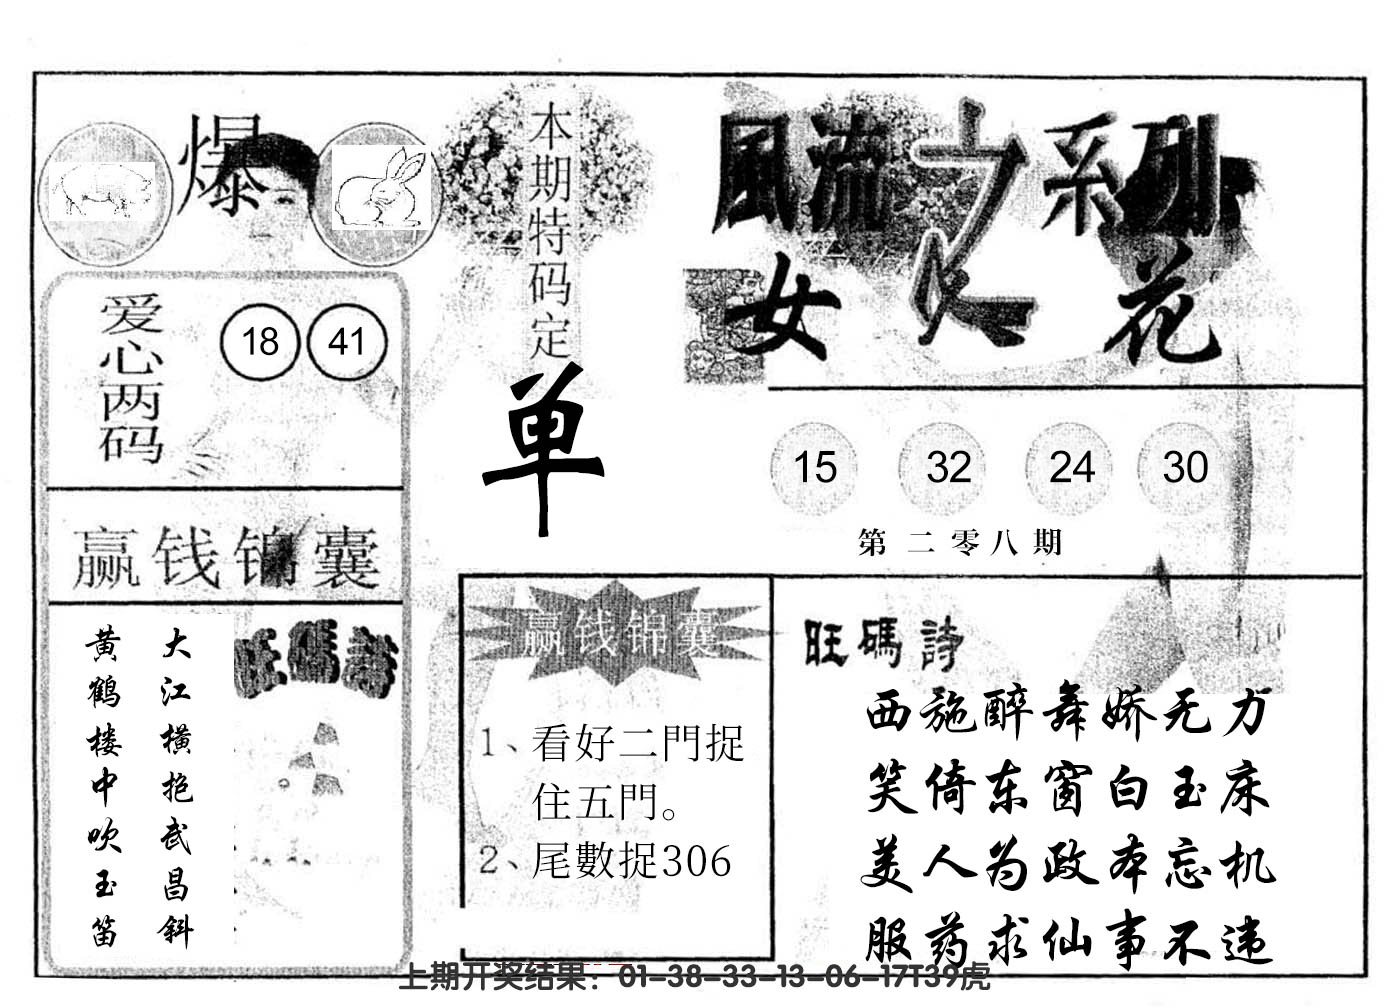 爆
本期特码定
单
風流之系列
女人花
爱心两码
18 41
15 32 24 30
第二零八期
赢钱锦囊
大江横抱武昌斜
黄鹤楼中吹玉笛
旺碼詩
赢钱锦囊
1、看好二門捉
住五門。
2、尾數捉306
旺碼詩
西施醉舞娇无力
笑倚东窗白玉床
美人为政本忘机
服药求仙事不违
上期开奖结果：01-38-33-13-06-17T39虎